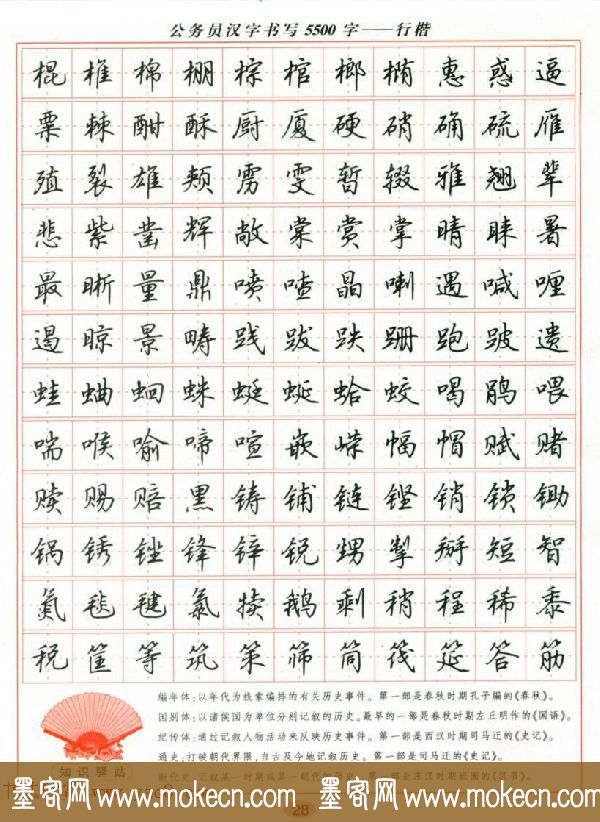 公务员汉字书写5500字——行楷
棍 椎 棉 棚 棕 棺 榔 椭 惠 惑 逼
粟 棘 酣 酥 厨 厦 硬 硝 确 硫 雁
殖 裂 雄 颊 雳 雯 暂 辍 雅 翘 辈
悲 紫 凿 辉 敞 棠 赏 掌 晴 睐 暑
最 晰 量 鼎 喷 喳 晶 喇 遇 喊 喱
遏 晾 景 畴 践 跋 跌 跚 跑 跛 遗
蛙 蚰 蛔 蛛 蜓 蜒 蛤 蛟 喝 鹃 喂
喘 喉 喻 啼 喧 嵌 嵘 幅 帽 赋 赌
赎 赐 赔 黑 铸 铺 链 铿 销 锁 锄
锅 锈 锉 锋 锌 锐 甥 掣 掰 短 智
氮 毯 毽 氯 犊 鹅 剩 稍 程 稀 黍
税 筐 等 筑 策 筛 筒 筏 筵 答 筋
编年体：以年代为线索编排的有关历史事件。第一部是春秋时期孔子编的《春秋》。
国别体：以诸侯国为单位分别记叙的历史。最早的一部是春秋时期左丘明作的《国语》。
纪传体：通过记叙人物活动来反映历史事件。第一部是西汉时期司马迁的《史记》。
通史：打破朝代界限，自古及今地记叙历史。第一部是司马迁的《史记》。
知识驿站
断代史：记叙某一时期或某一朝代的历史。第一部是东汉时期班固的《汉书》。
墨客网 www.mokecn.com 墨客网 www.mokecn.com
28